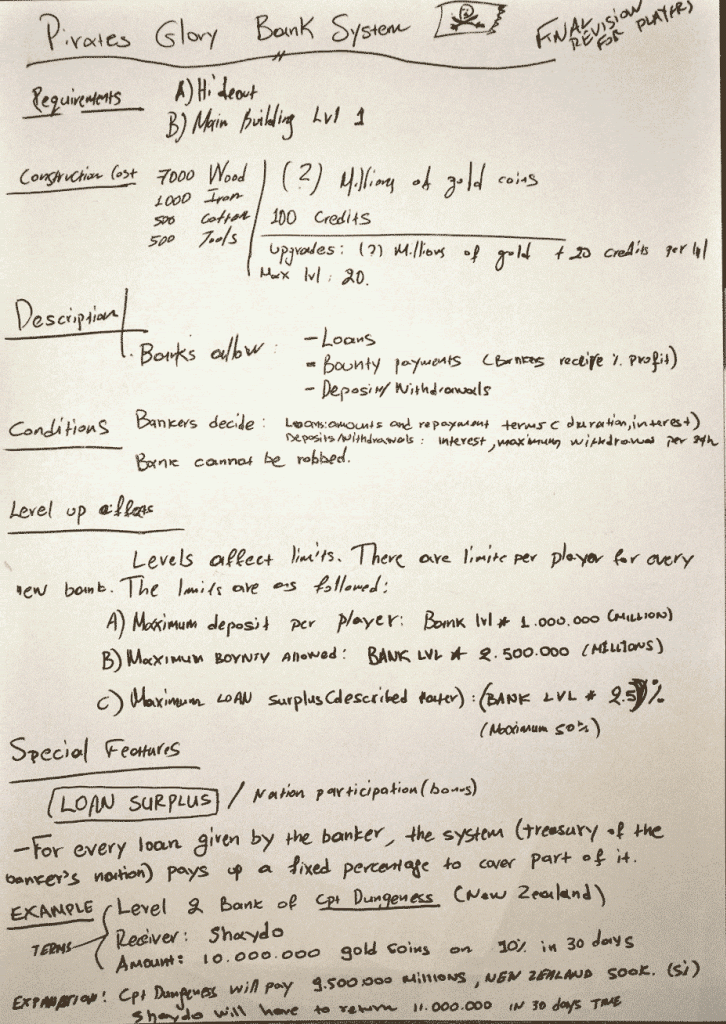 Pirates Glory Bank System
FINAL REVISION FOR PLAY(FR)
Requirements A) Hideout
B) Main Building Lvl 1
Construction Cost 7000 Wood (?) Millions of gold coins
1000 Iron
500 Cotton 100 Credits
500 Tools
Upgrades: (?) Millions of gold + 20 credits per lvl
Max lvl: 20.
Description
Banks allow: - Loans
- Bounty payments (Bankers receive % profit)
- Deposits/Withdrawals
Conditions Bankers decide: Loans: amounts and repayment terms (duration, interest)
Deposits/Withdrawals: interest, maximum withdrawal per 24h
Bank cannot be robbed.
Level up affects
Levels affect limits. There are limits per player for every
new bank. The limits are as followed:
A) Maximum deposit per player: Bank lvl * 1.000.000 (MILLION)
B) Maximum BOUNTY Allowed: BANK LVL * 2.500.000 (MILLIONS)
C) Maximum LOAN surplus (described later): (BANK LVL * 2.5)%
(Maximum 50%)
Special Features
LOAN SURPLUS / Nation participation (bonus)
- For every loan given by the banker, the system (treasury of the
banker's nation) pays up a fixed percentage to cover part of it.
EXAMPLE Level 2 Bank of Cpt Dungeness (New Zealand)
TERMS Reciver: Shaydo
Amount: 10.000.000 gold coins on 10% in 30 days
EXPANATION: Cpt Dungeness will pay 9.500.000 millions, NEW ZEALAND 500K. (Si)
Shaydo will have to return 11.000.000 IN 30 days TIME